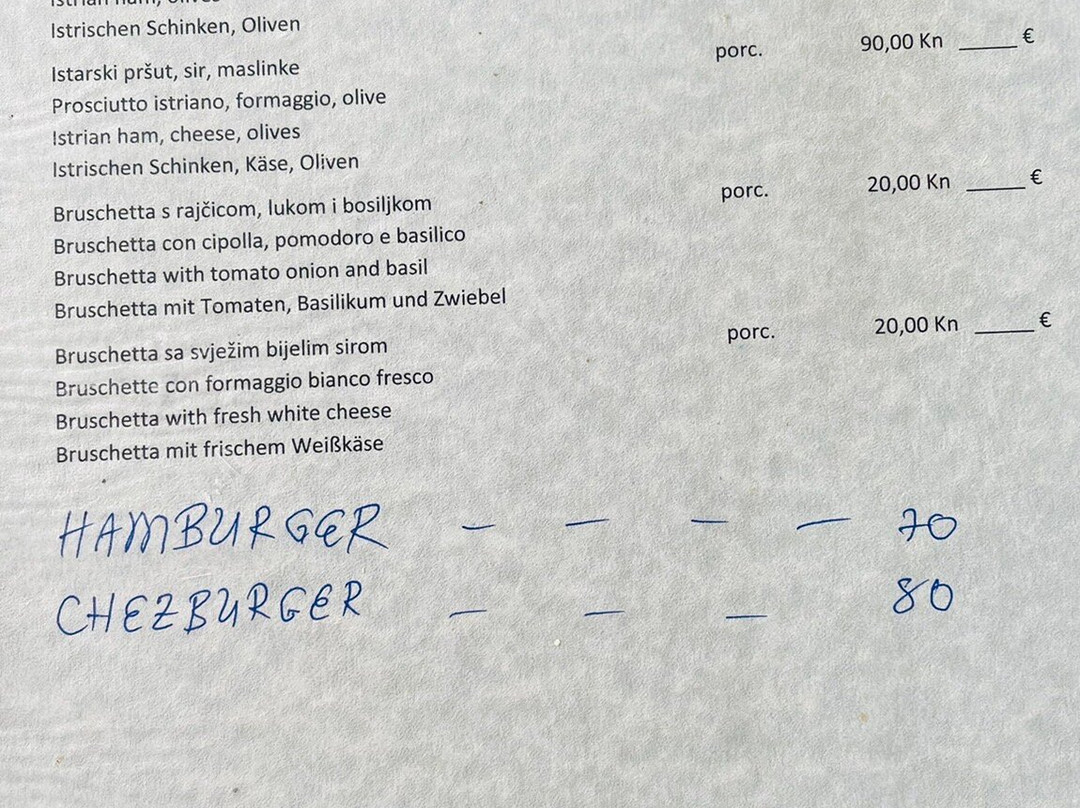 Istrischen Schinken, Oliven
Istarski pršut, sir, maslinke porc. 90,00 Kn _____ €
Prosciutto istriano, formaggio, olive
Istrian ham, cheese, olives
Istrischen Schinken, Käse, Oliven
Bruschetta s rajčicom, lukom i bosiljkom porc. 20,00 Kn _____ €
Bruschetta con cipolla, pomodoro e basilico
Bruschetta with tomato onion and basil
Bruschetta mit Tomaten, Basilikum und Zwiebel
Bruschetta sa svježim bijelim sirom porc. 20,00 Kn _____ €
Bruschette con formaggio bianco fresco
Bruschetta with fresh white cheese
Bruschetta mit frischem Weißkäse
HAMBURGER – – – – 70
CHEZBURGER – – – 80